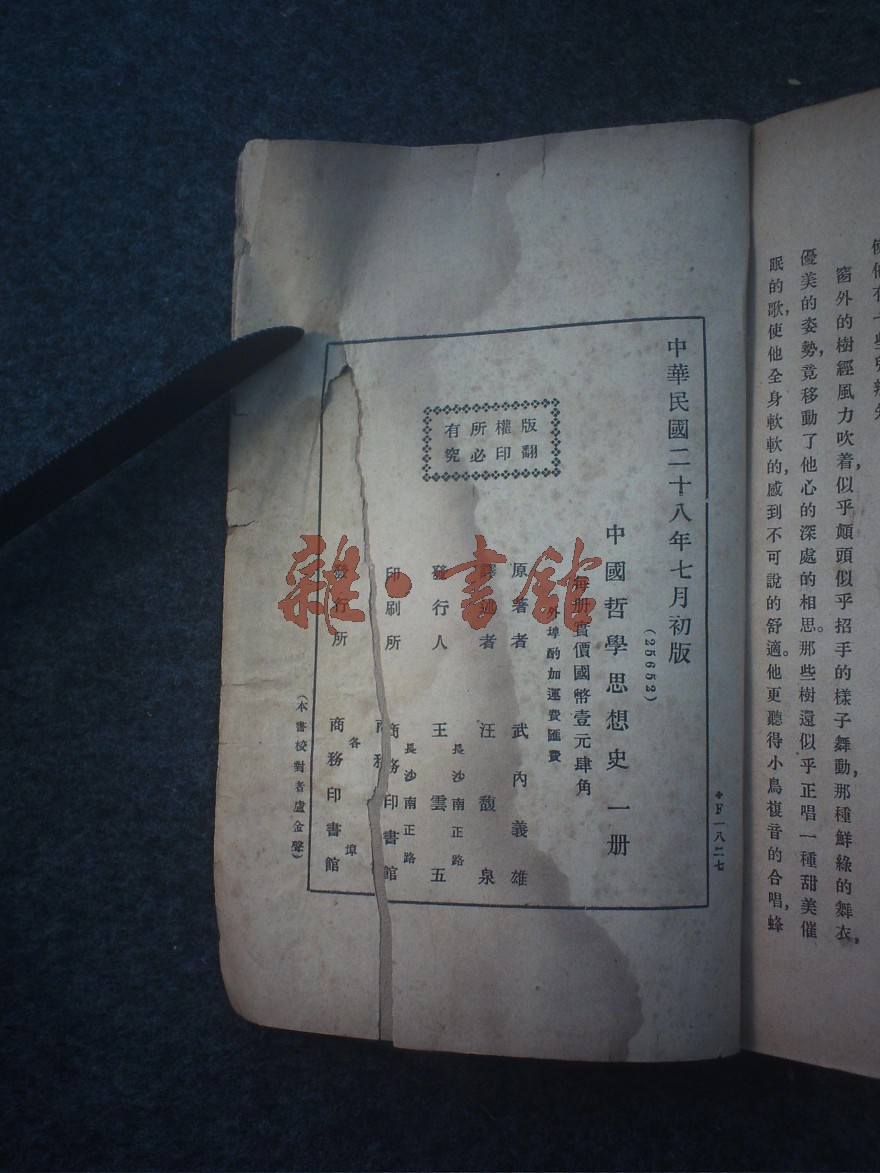 優美的姿勢，竟移動了他心的深處的相思。那些樹還似乎正唱一種甜美催
眠的歌，使他全身軟軟的，感到不可說的舒適。他更聽得小鳥複音的合唱，蜂
窗外的樹經風力吹着，似乎顛頭似乎招手的樣子舞動，那種鮮綠的舞衣，
中華民國二十八年七月初版
＊F一八二七
(25652)
中國哲學思想史 一册
每册實價國幣壹元肆角
外埠酌加運費匯費
版權所有
翻印必究
原著者 武內義雄
譯述者 汪馥泉
發行人 王雲五
長沙南正路
印刷所 商務印書館
長沙南正路
發行所 商務印書館
各埠
(本書校對者盧金聲)
雜·書館